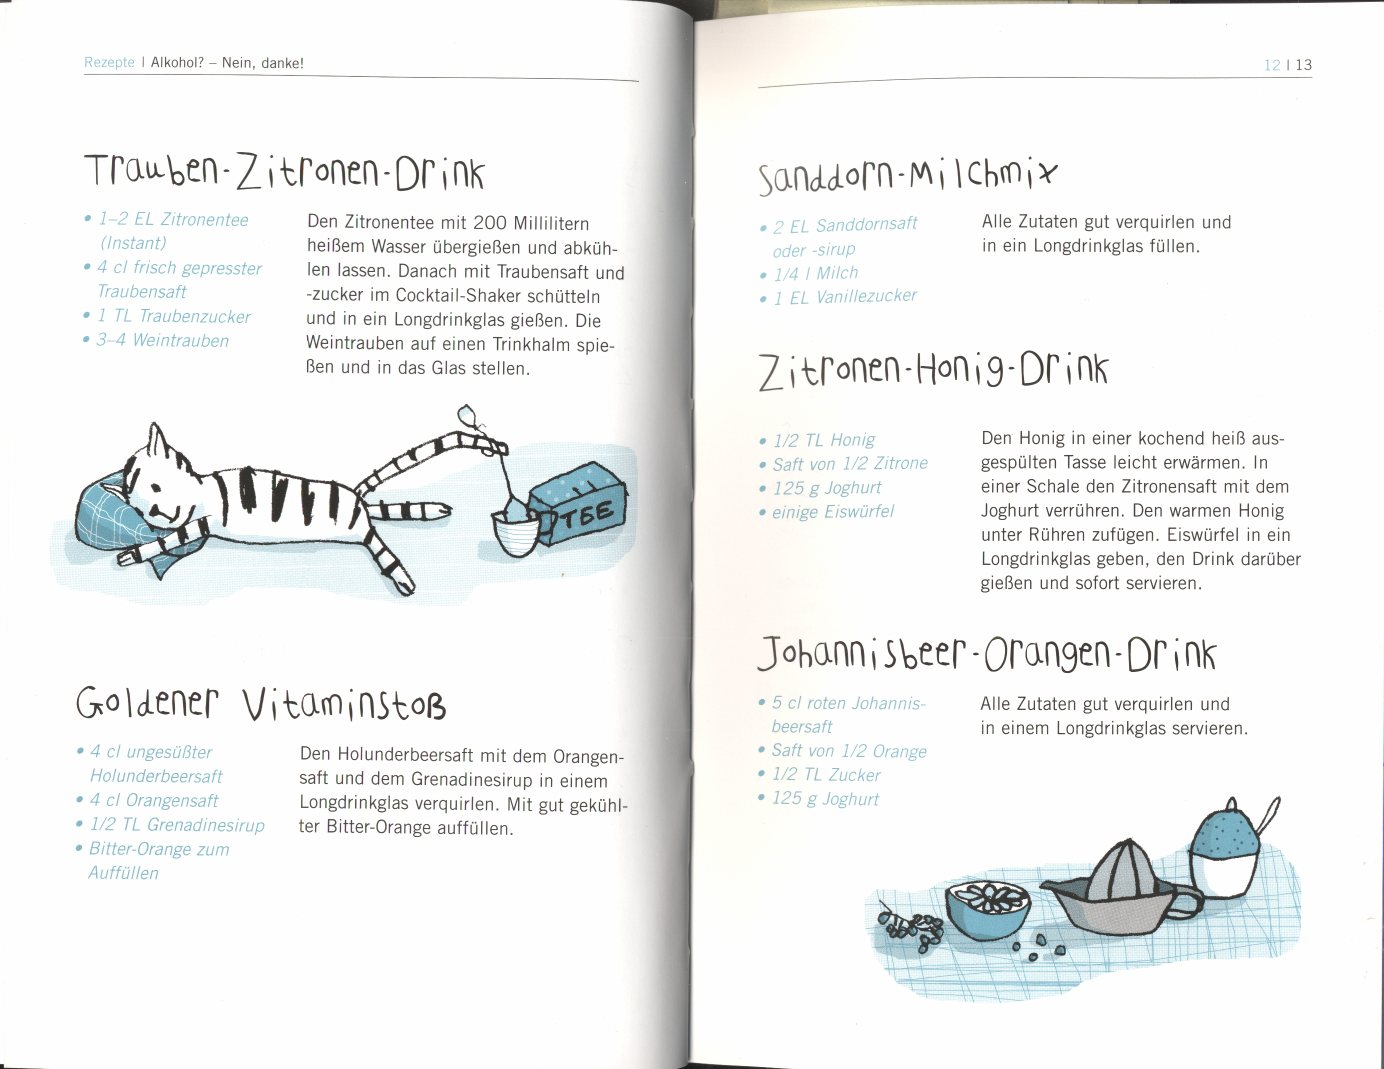 Rezepte | Alkohol? – Nein, danke!
Trauben-Zitronen-Drink
• 1–2 EL Zitronentee
(Instant)
• 4 cl frisch gepresster
Traubensaft
• 1 TL Traubenzucker
• 3–4 Weintrauben
Den Zitronentee mit 200 Millilitern
heißem Wasser übergießen und abküh-
len lassen. Danach mit Traubensaft und
-zucker im Cocktail-Shaker schütteln
und in ein Longdrinkglas gießen. Die
Weintrauben auf einen Trinkhalm spie-
ßen und in das Glas stellen.
TEE
Goldener Vitaminstoß
• 4 cl ungesüßter
Holunderbeersaft
• 4 cl Orangensaft
• 1/2 TL Grenadinesirup
• Bitter-Orange zum
Auffüllen
Den Holunderbeersaft mit dem Orangen-
saft und dem Grenadinesirup in einem
Longdrinkglas verquirlen. Mit gut gekühl-
ter Bitter-Orange auffüllen.
12 | 13
Sanddorn-Milchmix
• 2 EL Sanddornsaft
oder -sirup
• 1/4 l Milch
• 1 EL Vanillezucker
Alle Zutaten gut verquirlen und
in ein Longdrinkglas füllen.
Zitronen-Honig-Drink
• 1/2 TL Honig
• Saft von 1/2 Zitrone
• 125 g Joghurt
• einige Eiswürfel
Den Honig in einer kochend heiß aus-
gespülten Tasse leicht erwärmen. In
einer Schale den Zitronensaft mit dem
Joghurt verrühren. Den warmen Honig
unter Rühren zufügen. Eiswürfel in ein
Longdrinkglas geben, den Drink darüber
gießen und sofort servieren.
Johannisbeer-Orangen-Drink
• 5 cl roten Johannis-
beersaft
• Saft von 1/2 Orange
• 1/2 TL Zucker
• 125 g Joghurt
Alle Zutaten gut verquirlen und
in einem Longdrinkglas servieren.